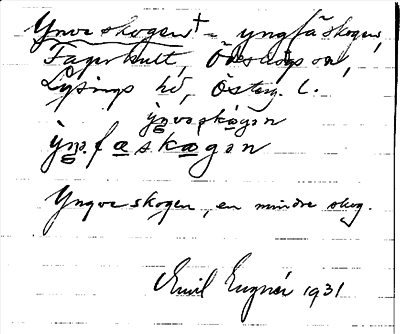 Yngveskogen† = yngfäskogen,
Fagerhult, Ödeshögs sn,
Lysings hd, Österg. l.
ỳŋvəskogən
ỳŋ.fəskogən
Yngveskogen, en mindre skog.
Emil Eugnér 1931